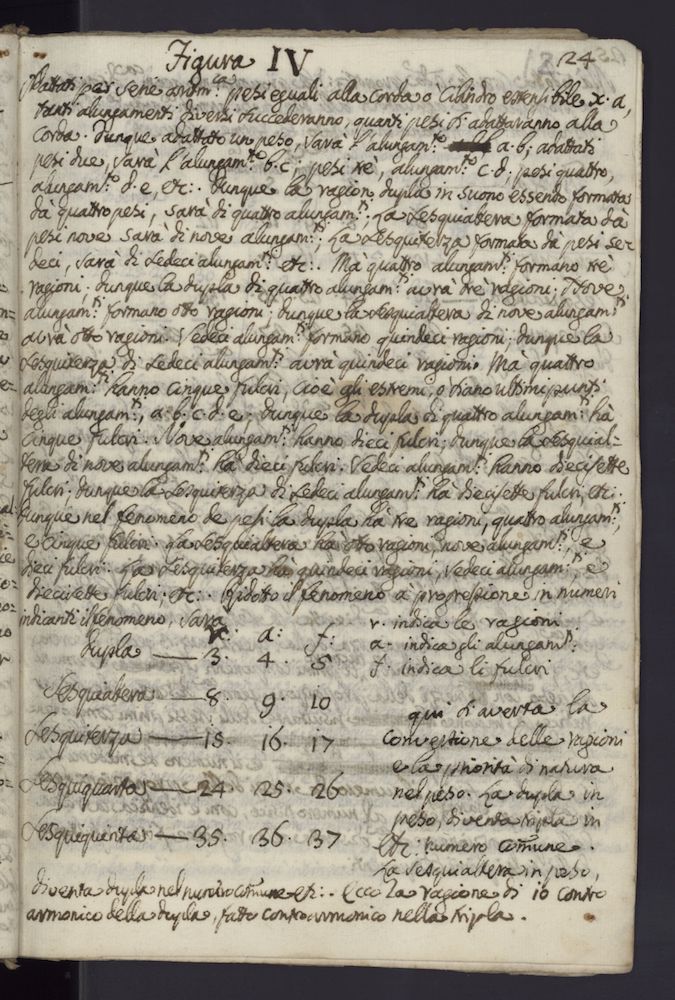 Figura IV
24
Adattati per serie aritm.ca pesi eguali alla corda o Cilindro estensibile x. a,
tanti alungamenti diversi succederanno, quanti pesi si adattaranno alla
Corda. Dunque adattato un peso, sarà l'alungam.to a. b; adattati
pesi due, sarà l'alungam.to b. c; pesi trè, alungam.to c. d; pesi quattro,
alungam.to d. e, etc:. Dunque la ragion dupla in suono essendo formata
dà quattro pesi, sarà di quattro alungam.ti; La Sesquialtera formata dà
pesi nove sarà di nove alungam.ti; La Sesquiterza formata dà pesi se=
deci, sarà di Sedeci alungam.ti etc:. Mà quattro alungam.ti formano trè
ragioni; dunque la dupla di quattro alungam.ti avrà trè ragioni. Nove
alungam.ti formano otto ragioni; dunque la sesquialtera di nove alungam.ti
avrà otto ragioni. Sedeci alungam.ti formano quindeci ragioni; dunque la
Sesquiterza di Sedeci alungam.ti avrà quindeci ragioni. Mà quattro
alungam.ti hanno cinque fulcri, cioè gli estremi, o siano ultimi punti
degli alungam.ti, a. b. c. d. e; dunque la dupla di quattro alungam.ti hà
cinque fulcri. Nove alungam.ti hanno dieci fulcri; dunque la sesquial=
tera di nove alungam.ti hà dieci fulcri. Sedeci alungam.ti hanno diecisette
fulcri; dunque la Sesquiterza di Sedeci alungam.ti hà diecisette fulcri, etc:.
Dunque nel fenomeno de pesi la dupla hà tre ragioni, quattro alungam.ti,
e cinque fulcri. La Sesquialtera hà otto ragioni, nove alungam.ti, e
dieci fulcri. La Sesquiterza hà quindeci ragioni, sedeci alungam.ti, e
diecisette fulcri; etc:. Ridotto il fenomeno a progressione in numeri
indicanti il fenomeno, sarà
r. a: f:
r. indica le ragioni
dupla — 3. 4. 5
a. indica gli alungam.ti
f. indica li fulcri
Sesquialtera — 8. 9. 10
Sesquiterza — 15. 16. 17
Sesquiquarta — 24. 25. 26
Sesquiquinta — 35. 36. 37
qui si averta la
conversione delle ragioni
e la priorità di natura
nel peso. La dupla in
peso, diventa tripla in
etc: numero comune.
La Sesquialtera in peso,
diventa dupla nel numero comune etc:. Ecco la ragione di 10 contro
armonico della dupla, fatto contro armonico nella tripla.